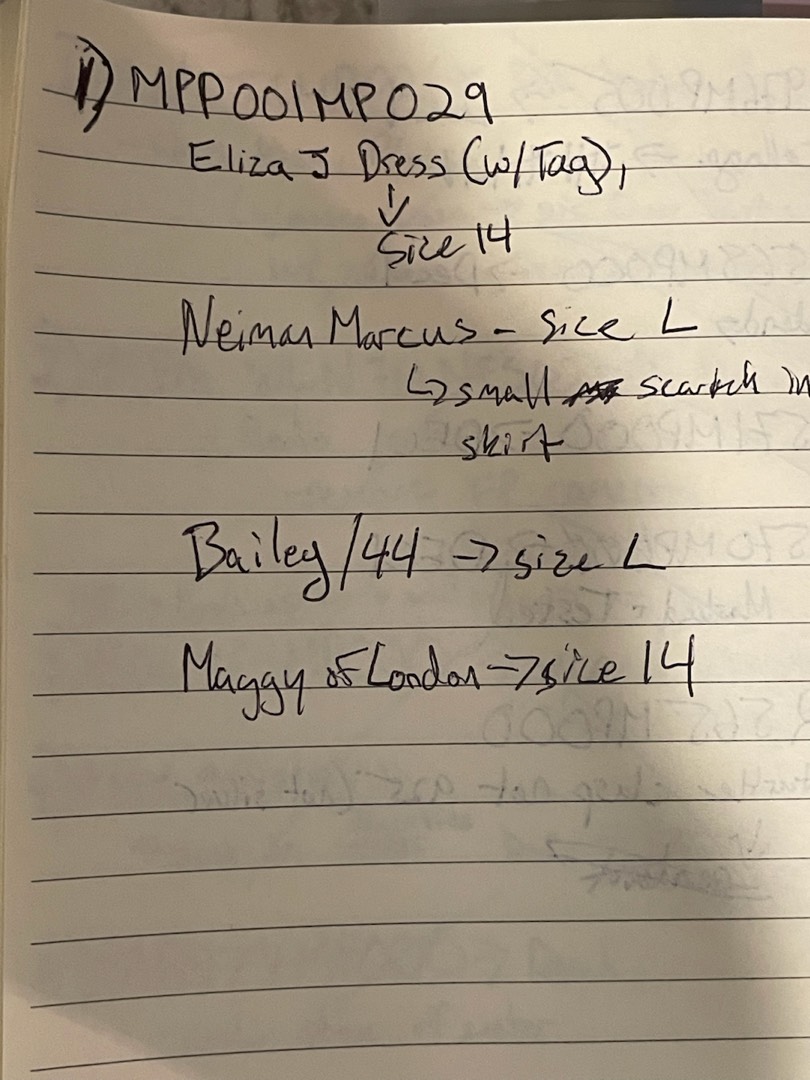 1) MPP001MP029
Eliza J Dress (w/Tag),
↓
Size 14
Neiman Marcus - size L
↳ small scartch in
skirt
Bailey/44 → size L
Maggy of London → size 14